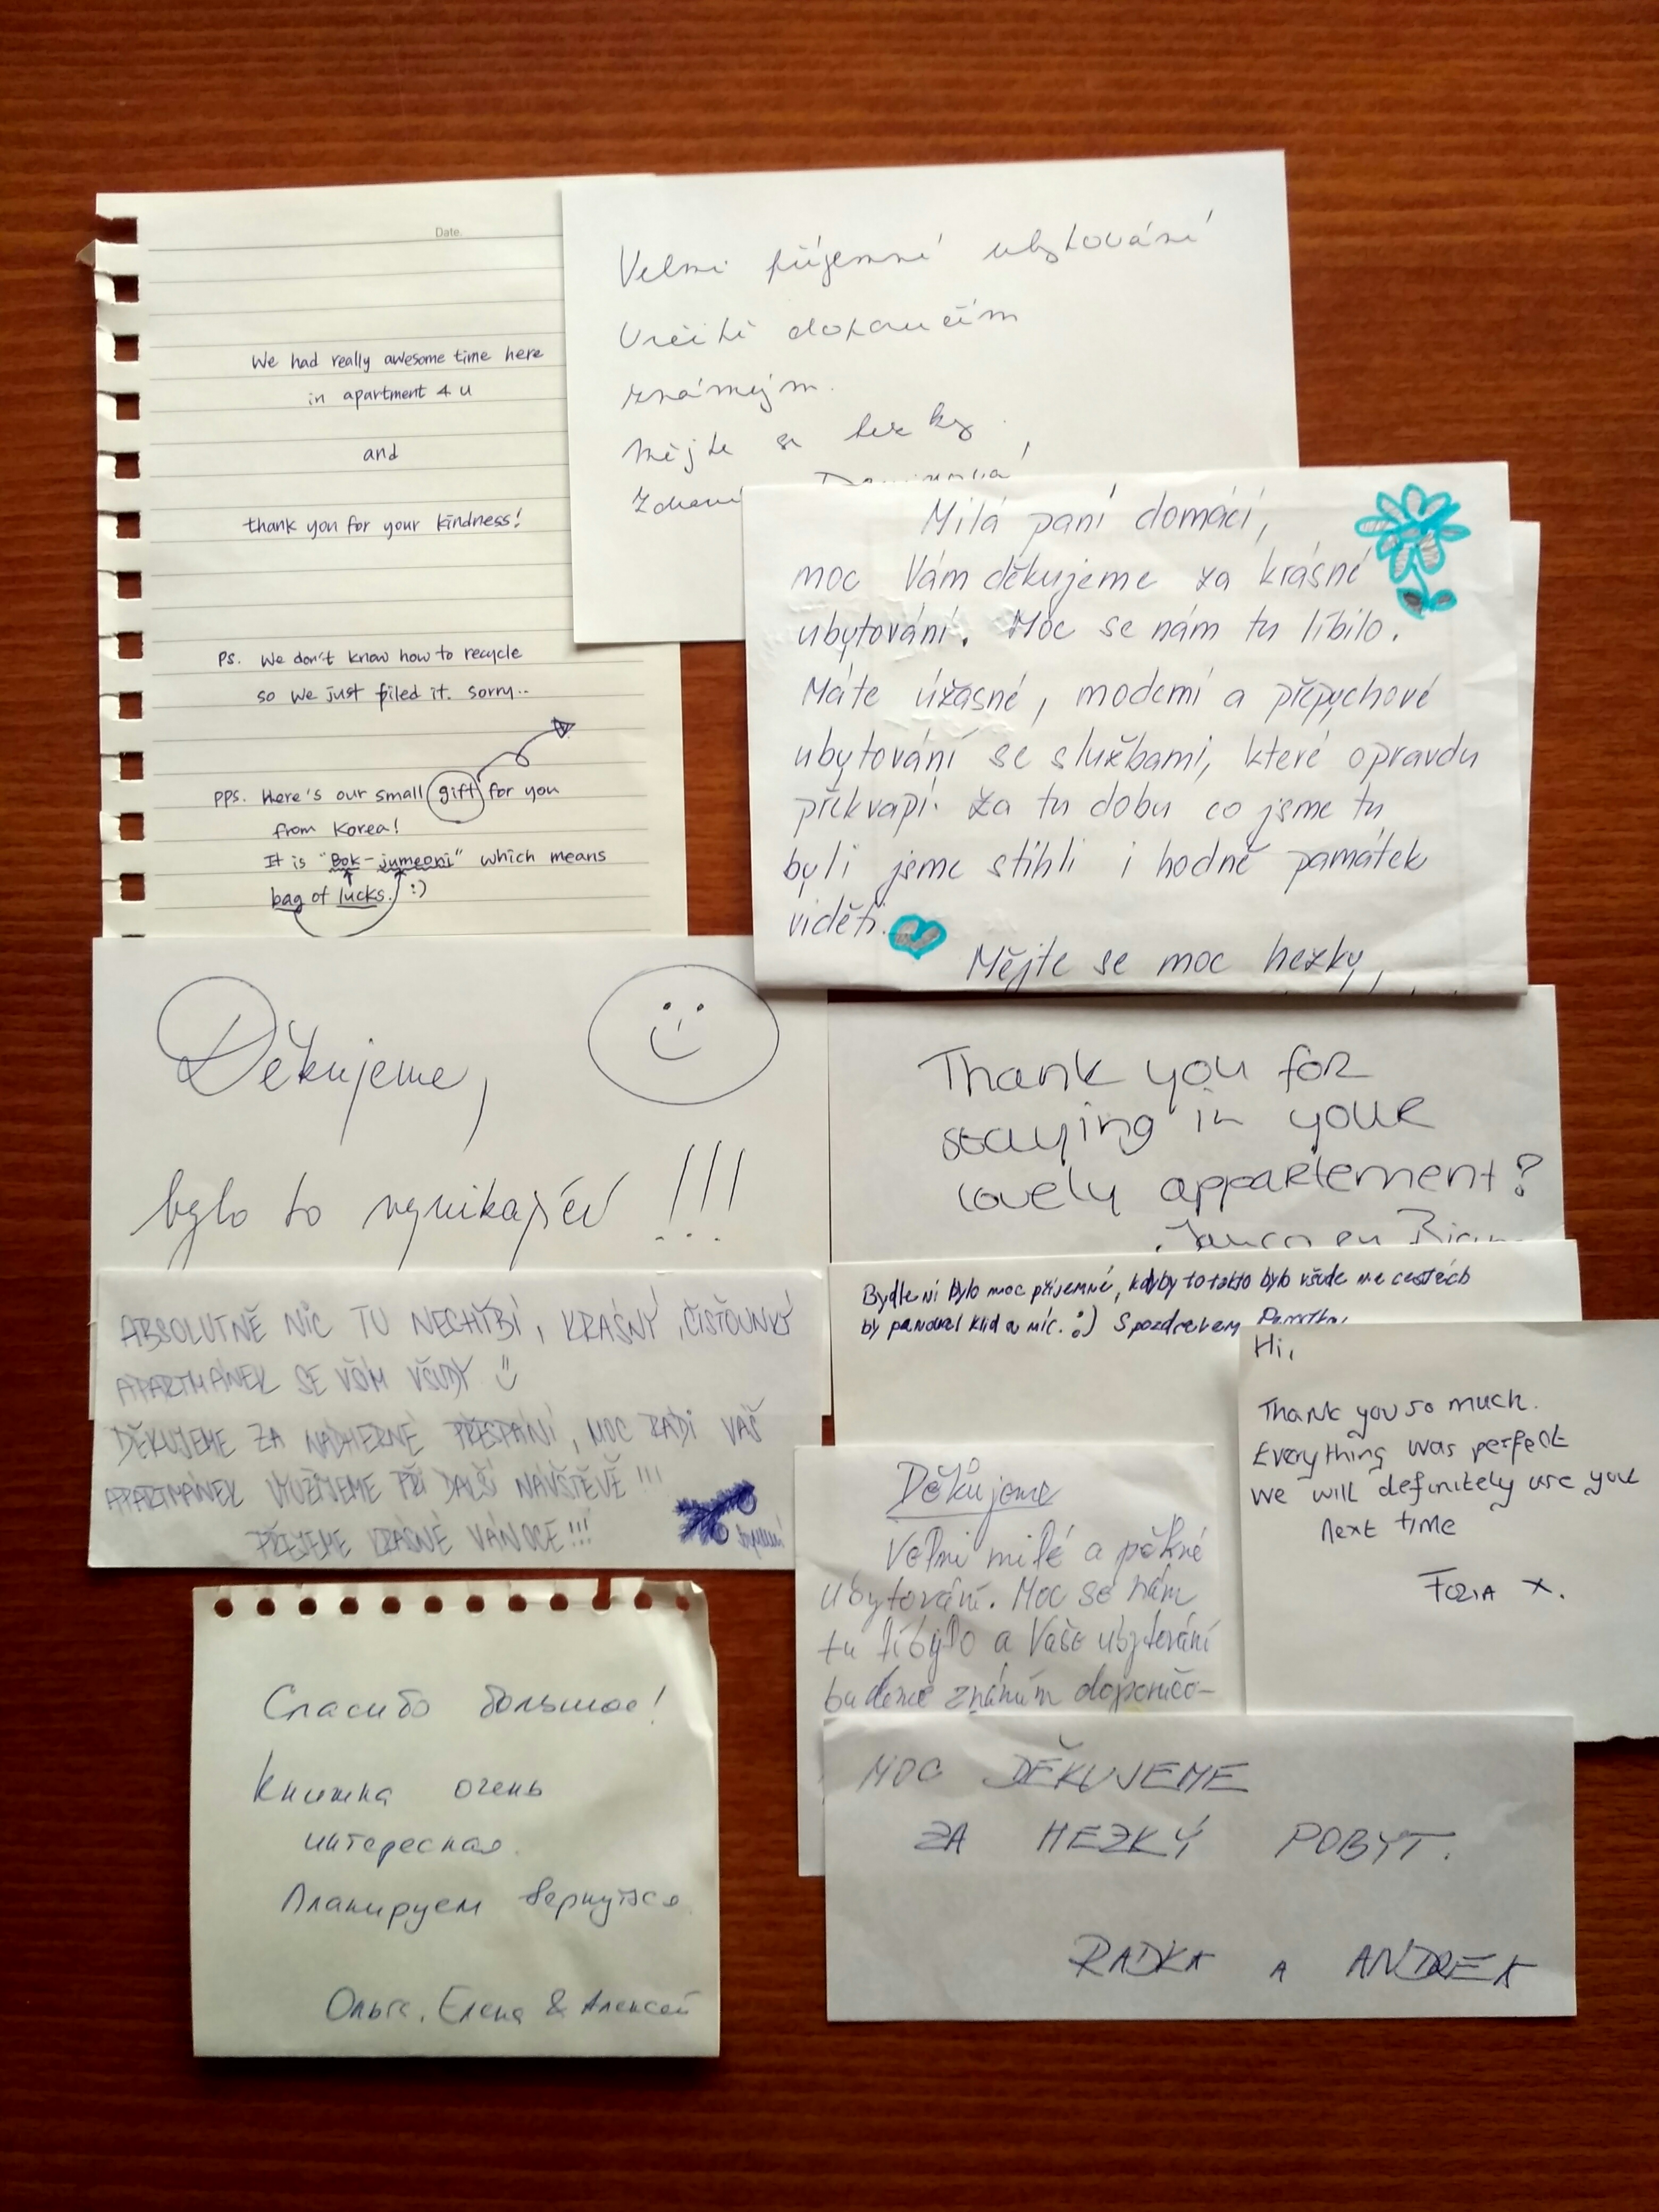 Date.
We had really awesome time here
in apartment 4 u
and
thank you for your kindness!
PS. We don't know how to recycle
so we just piled it. sorry..
PPS. Here's our small gift for you
from Korea!
It is "Bok-jumeoni" which means
bag of lucks. :)
Velmi příjemné ubytování
Určitě doporučím
známým.
Mějte se hezky.
Zdraví
Milá paní domácí,
moc Vám děkujeme za krásné
ubytování. Moc se nám tu líbilo.
Máte úžasné, moderní a přepychové
ubytování se službami, které opravdu
překvapí. Za tu dobu co jsme tu
byli jsme stihli i hodně památek
vidět.
Mějte se moc hezky,
Děkujeme,
bylo to vynikající !!!
Thank you for
staying in your
lovely appartement?
ABSOLUTNĚ NIC TU NECHYBÍ, KRÁSNÝ, ČISŤOUNKÝ
APARTMÁNEK SE VŠÍM VŠUDY
DĚKUJEME ZA NÁDHERNÉ PŘESPÁNÍ, MOC RÁDI VÁŠ
APARTMÁNEK VYUŽIJEME PŘI DALŠÍ NÁVŠTĚVĚ !!!
PŘEJEME KRÁSNÉ VÁNOCE!!!
Bydlení bylo moc příjemné, kdyby to takto bylo všude na cestách
by panoval klid a mír. :) S pozdravem
Hi,
Thank you so much.
Everything was perfect
we will definitely use you
next time
FOZIA X.
Děkujeme
Velmi milé a pěkné
ubytování. Moc se nám
tu líbylo a Vaše ubytování
budeme známím doporučo-
MOC DĚKUJEME
ZA HEZKÝ POBYT.
RADKA A ANDREA
Спасибо большое!
Книжка очень
интересная.
Планируем вернуться.
Ольга, Елена & Алексей